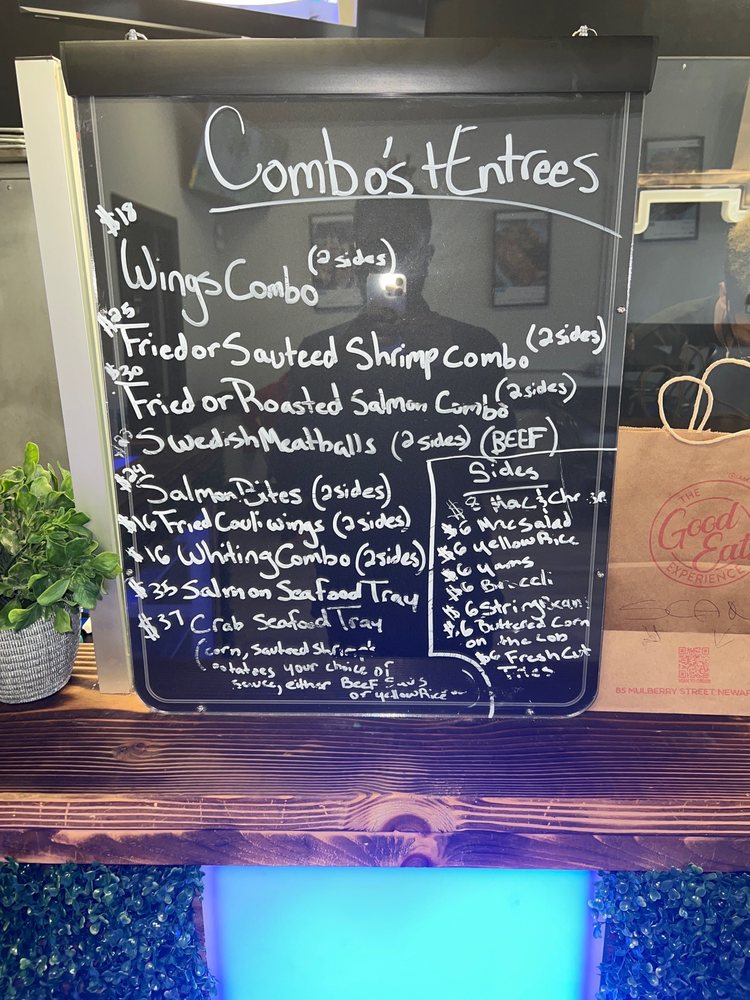 Combo's + Entrees
$18
Wings Combo (2 sides)
$25
Fried or Sauteed Shrimp Combo (2 sides)
$30
Fried or Roasted Salmon Combo (2 sides)
Swedish Meatballs (2 sides) (BEEF)
$24
Salmon Bites (2 sides)
$16 Fried Cauliwings (2 sides)
$16 Whiting Combo (2 sides)
$35 Salmon Seafood Tray
$37 Crab Seafood Tray
(corn, sauteed shrimp
potatoes your choice of
sauce, either Beef
or yellow Rice
Sides
$8 Mac &
$6 Mac Salad
$6 Yellow Rice
$6 Yams
$6
$6
$6 Buttered Corn
on the Cob
$6 Fresh Cut
Fries
THE
Good
Eats
EXPERIENCE
85 MULBERRY STREET NEWAR